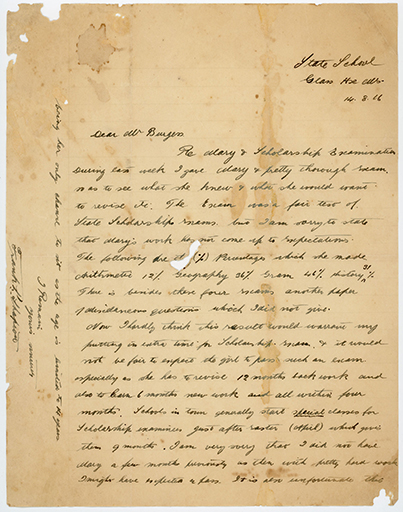 State School
Glass H
14.8.16
Dear Mr Burgess
Re Mary & Scholarship Examination
During last week I gave Mary a pretty thorough exam,
so as to see what she knew & what she would want
to revise in. The Exam was a fair test of
State Scholarship exams but I am sorry to state
that Mary's work has not come up to expectations.
The following are the (%) Percentages which she made
Arithmetic 12% Geography 36% Gram 46% History 31%
There is besides these four exams another paper
of questions which I did not give.
Now I hardly think this result would warrant my
putting in extra time for Scholarship exam & it would
not be fair to expect the girl to pass such an exam
especially as she has to revise 12 months back work and
also to learn 6 months new work and all within four
months. Schools in town generally start special classes for
Scholarship examinees just after easter (April) which give
them 9 months. I am very sorry that I did not have
Mary a few months previously as then with pretty hard work
I might have expected a pass. It is also unfortunate this
being her only chance to sit as the age is limited to 14 years
I Remain
Yours sincerely